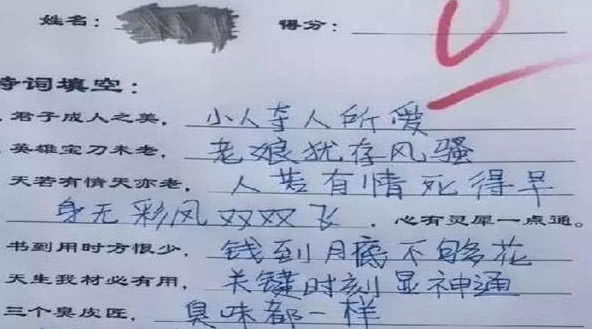 姓名: 得分: 0
诗词填空:
君子成人之美, 小人夺人所爱
英雄宝刀未老, 老娘犹存风骚
天若有情天亦老, 人若有情死得早
身无彩风双双飞. 心有灵犀一点通。
书到用时方恨少, 钱到月底不够花
天生我材必有用, 关键时刻显神通
三个臭皮匠, 臭味都一样